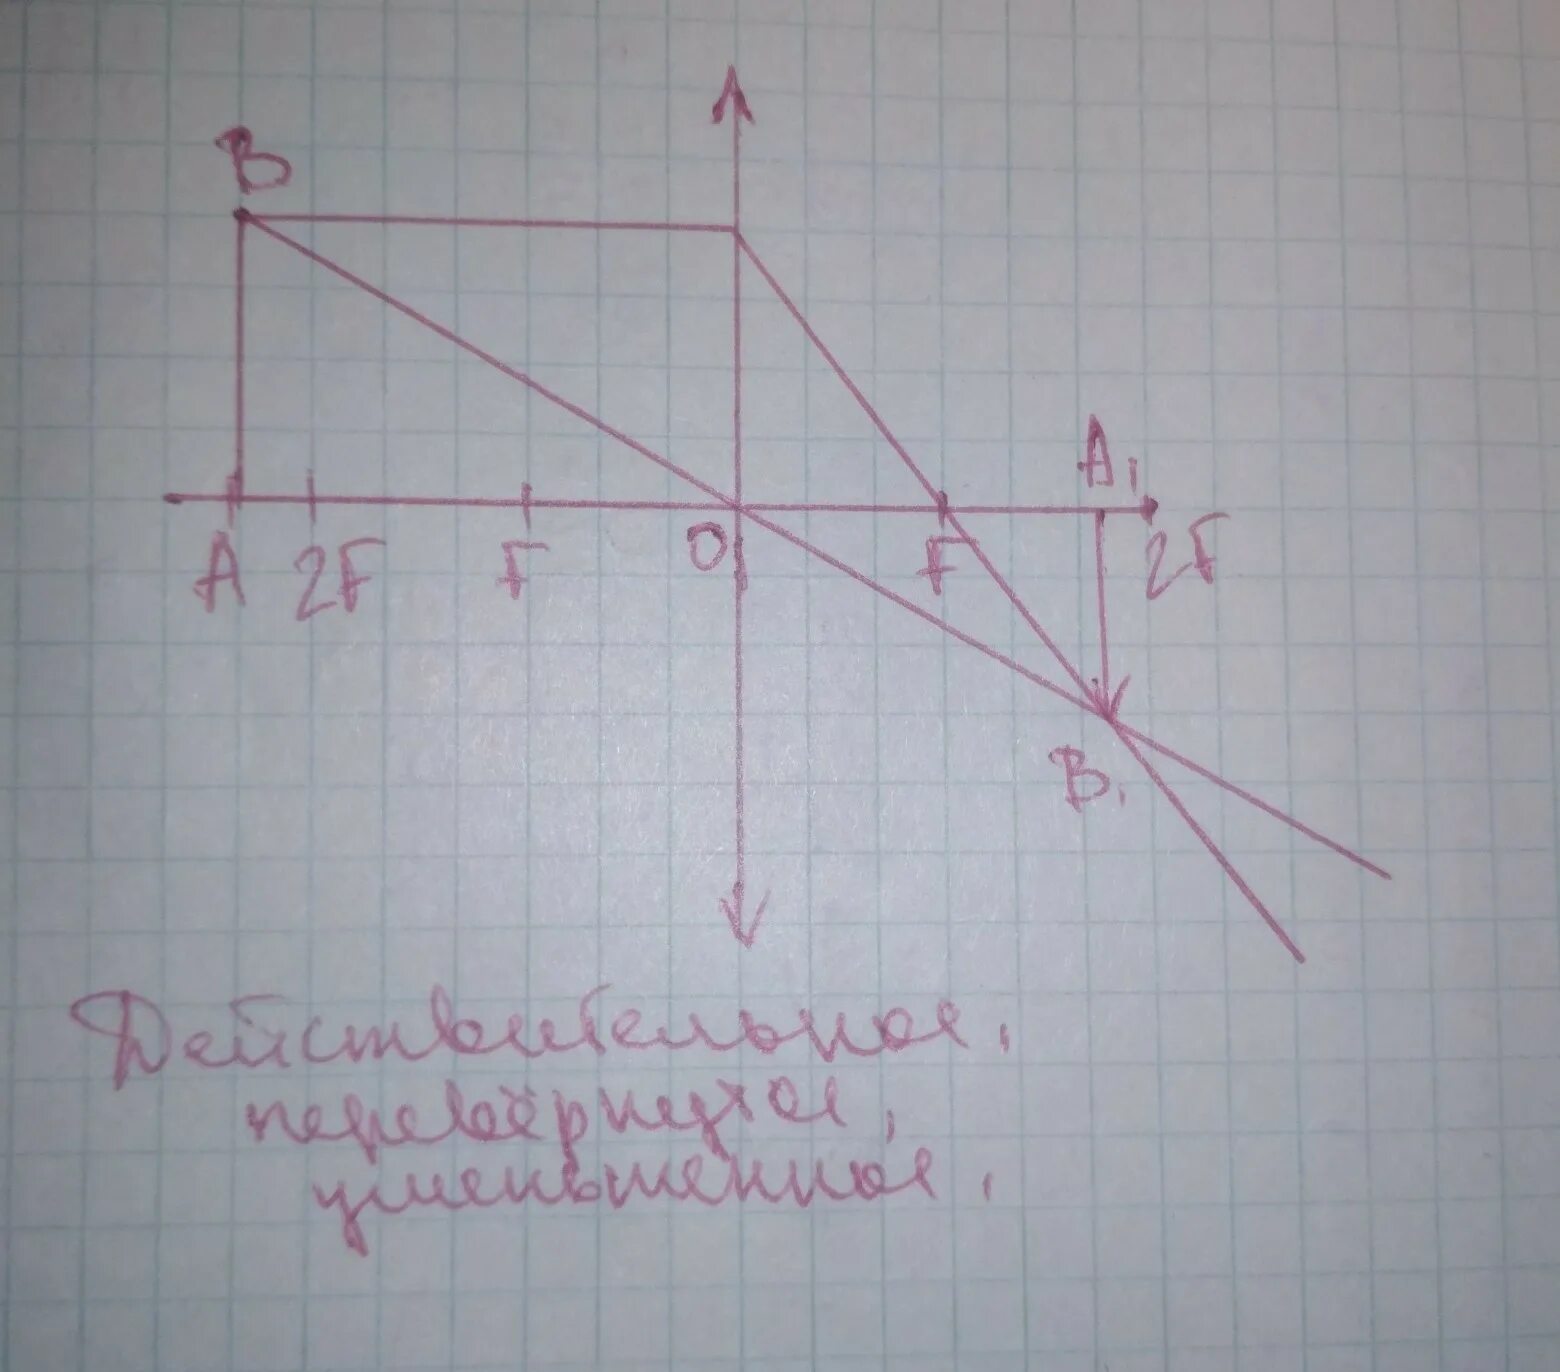 B
A₁
A 2F F O F 2F
B₁
Действительное,
перевёрнутое,
уменьшенное.